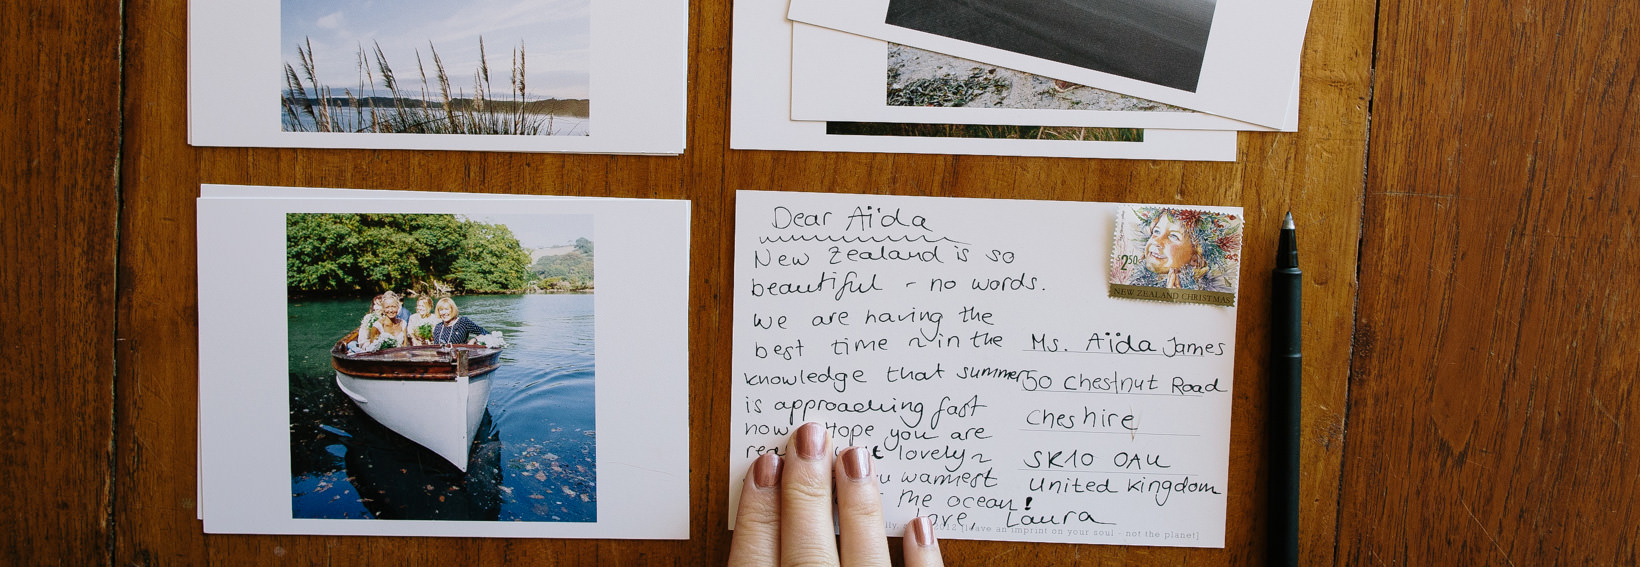 Dear Aïda
New Zealand is so
beautiful - no words.
We are having the
best time ~ in the
knowledge that summer
is approaching fast
now. Hope you are
lovely ~
warmest
the ocean!
Love Laura
$2.50
NEW ZEALAND CHRISTMAS
Ms. Aïda James
50 Chestnut Road
Cheshire
SK10 0AU
United Kingdom
2012 [leave an imprint on your soul - not the planet]